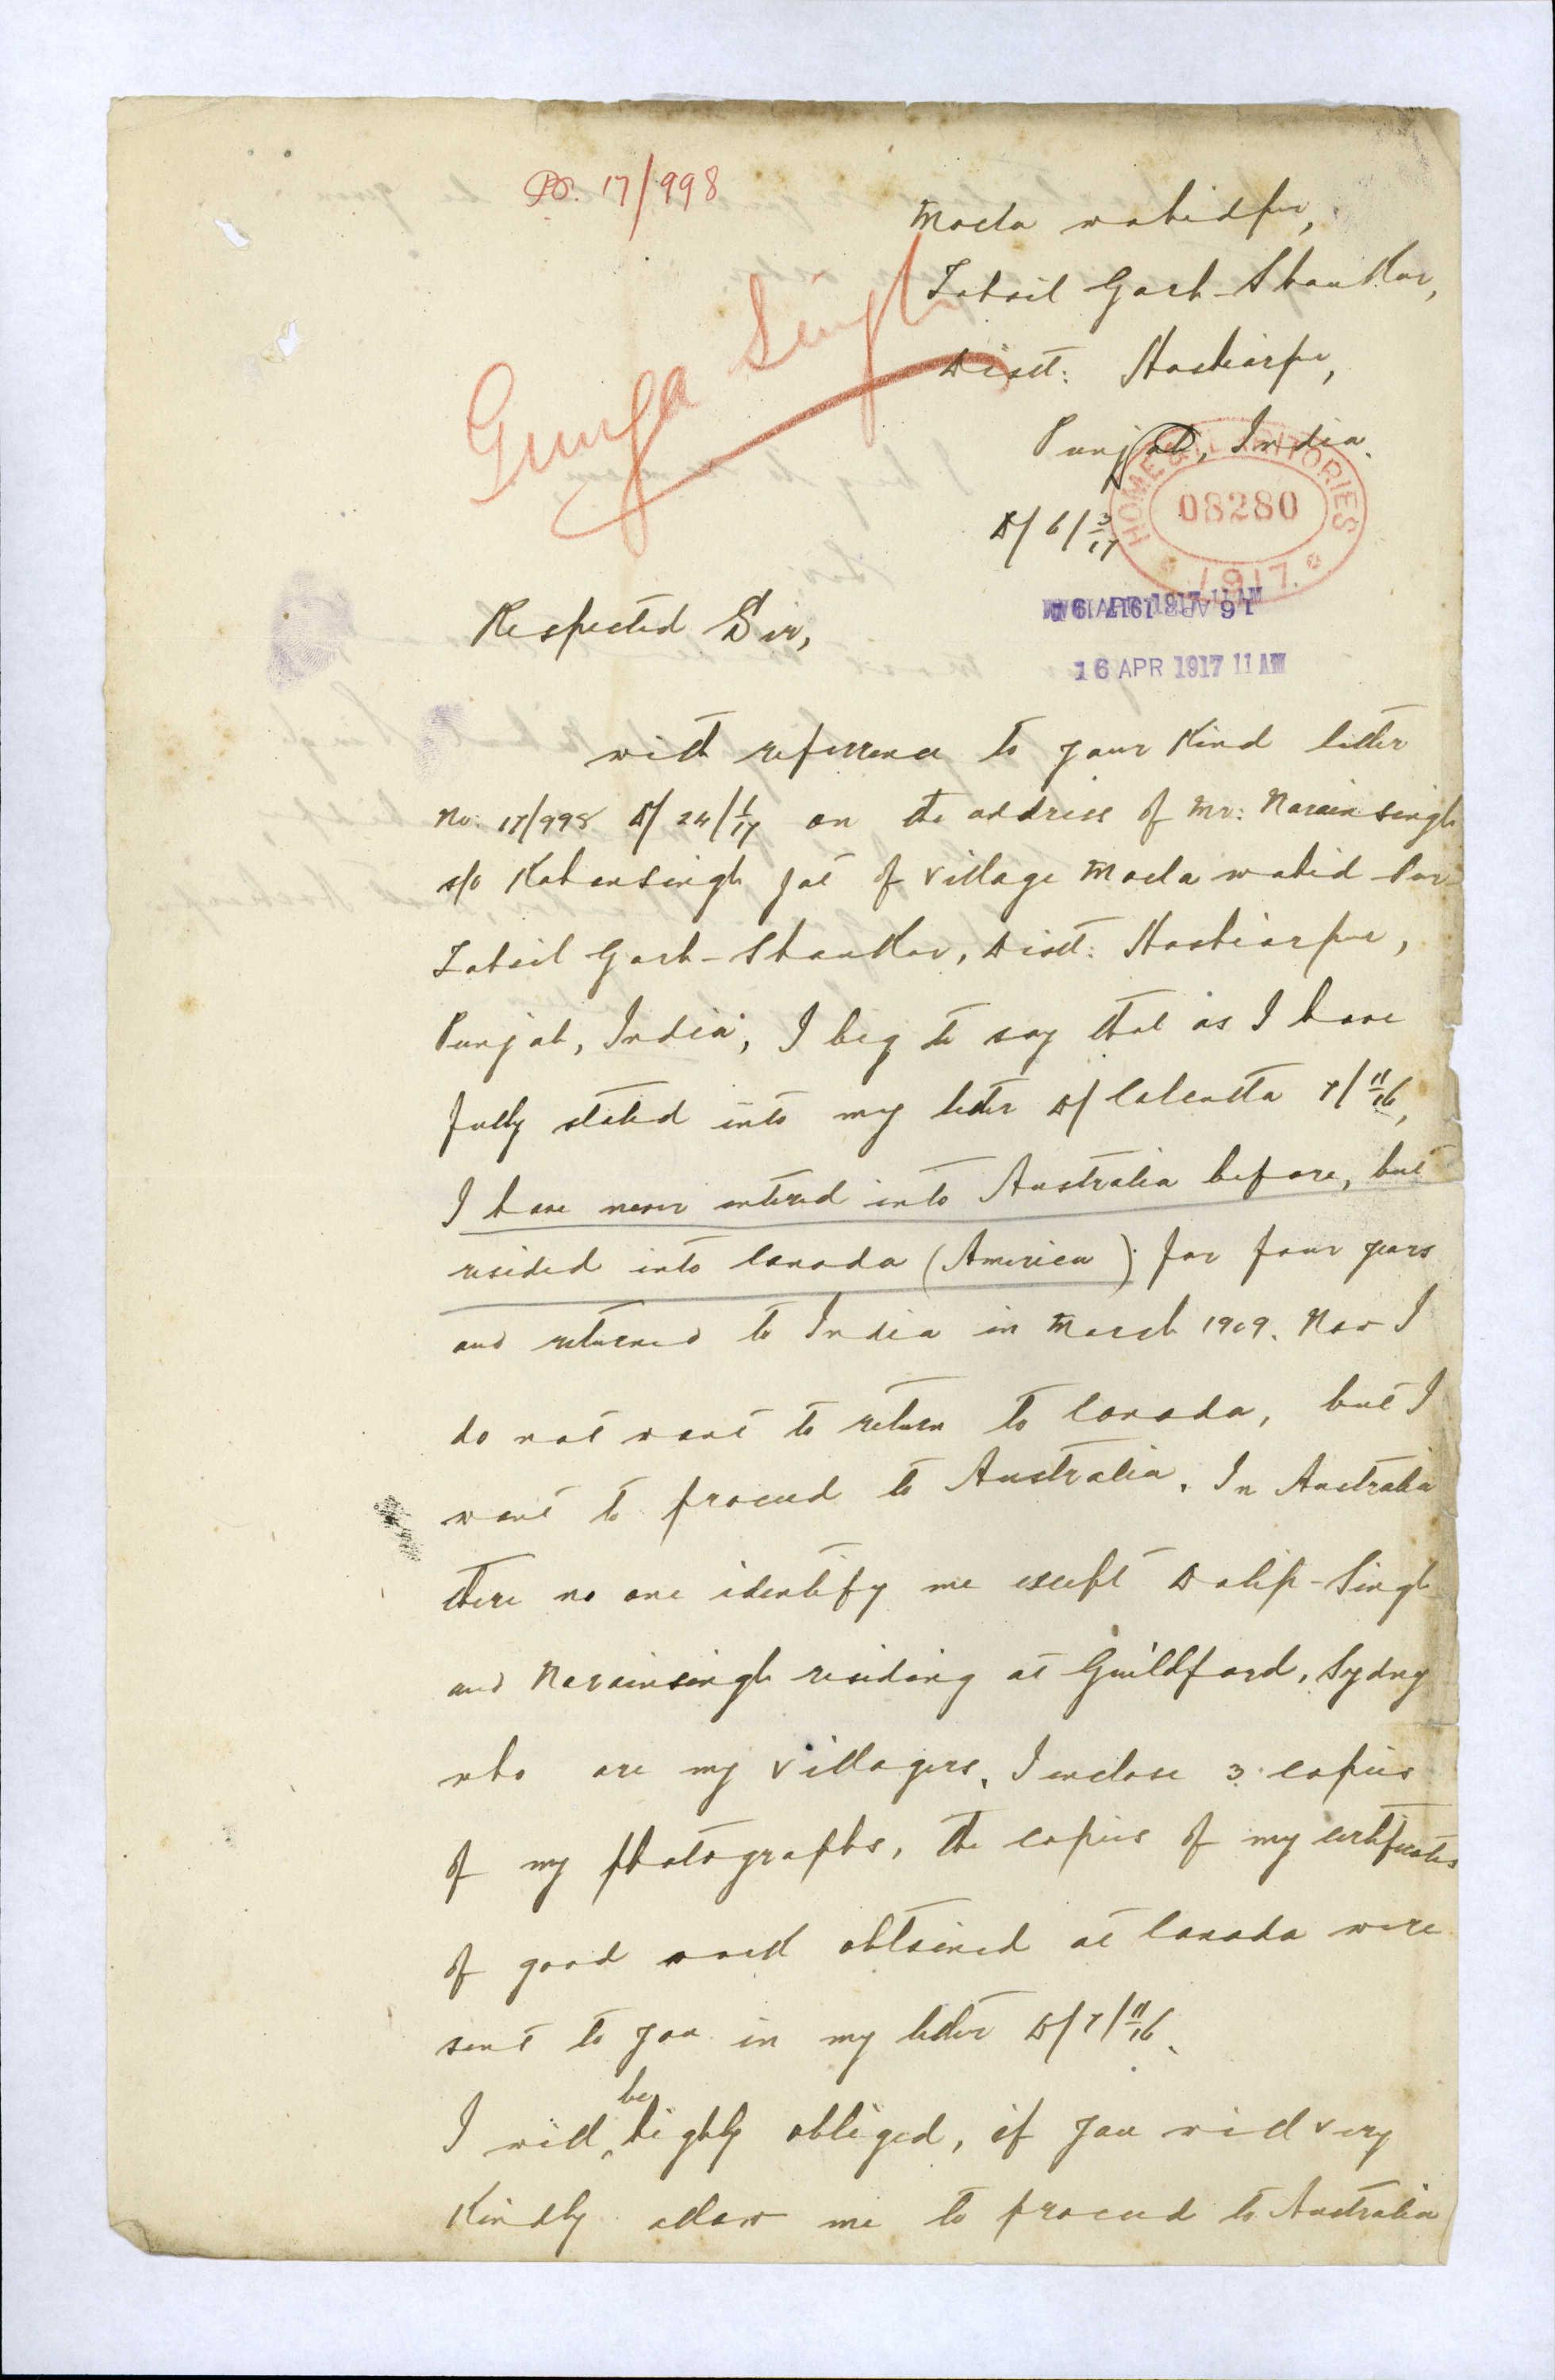 17/998
Gunga Singh
Moela wahidpur,
Tahsil Garh-Shankar,
Distt: Hoshiarpur,
Punjab, India.
D/ 6/3/17
HOME & TERRITORIES
08280
1917.
16 APR 1917 11 AM
Respected Sir,
with referrence to your Kind letter
No: 17/998 D/ 24/1/17 on the address of Mr: Narain singh
s/o Kahansingh Jat of village Moela wahid Pur
Tahsil Garh-Shankar, Distt: Hoshiarpur,
Punjab, India, I beg to say that as I have
fully stated into my letter D/ Calcutta 7/11/16,
I have never entered into Australia before, but
resided into Canada (America) for four years
and returned to India in March 1909. Now I
do not want to return to Canada, but I
want to proceed to Australia. In Australia
there no one identify me except Dalip-Singh
and Narainsingh residing at Guildford, Sydny
who are my villagers. I enclose 3 copies
of my photographs, the copies of my certificates
of good work obtained at Canada were
sent to you in my letter D/7/11/16.
I will be highly obliged, if you will very
Kindly allow me to proceed to Australia